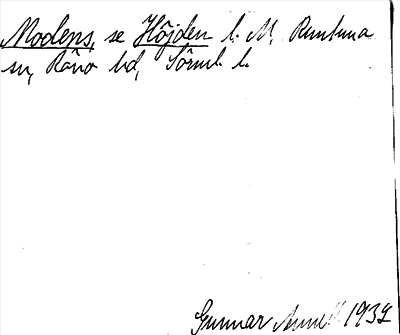 Modens, se Höjden l. M, Runtuna
sn, Rönö hd, Sörml. l.
Gunnar 1932